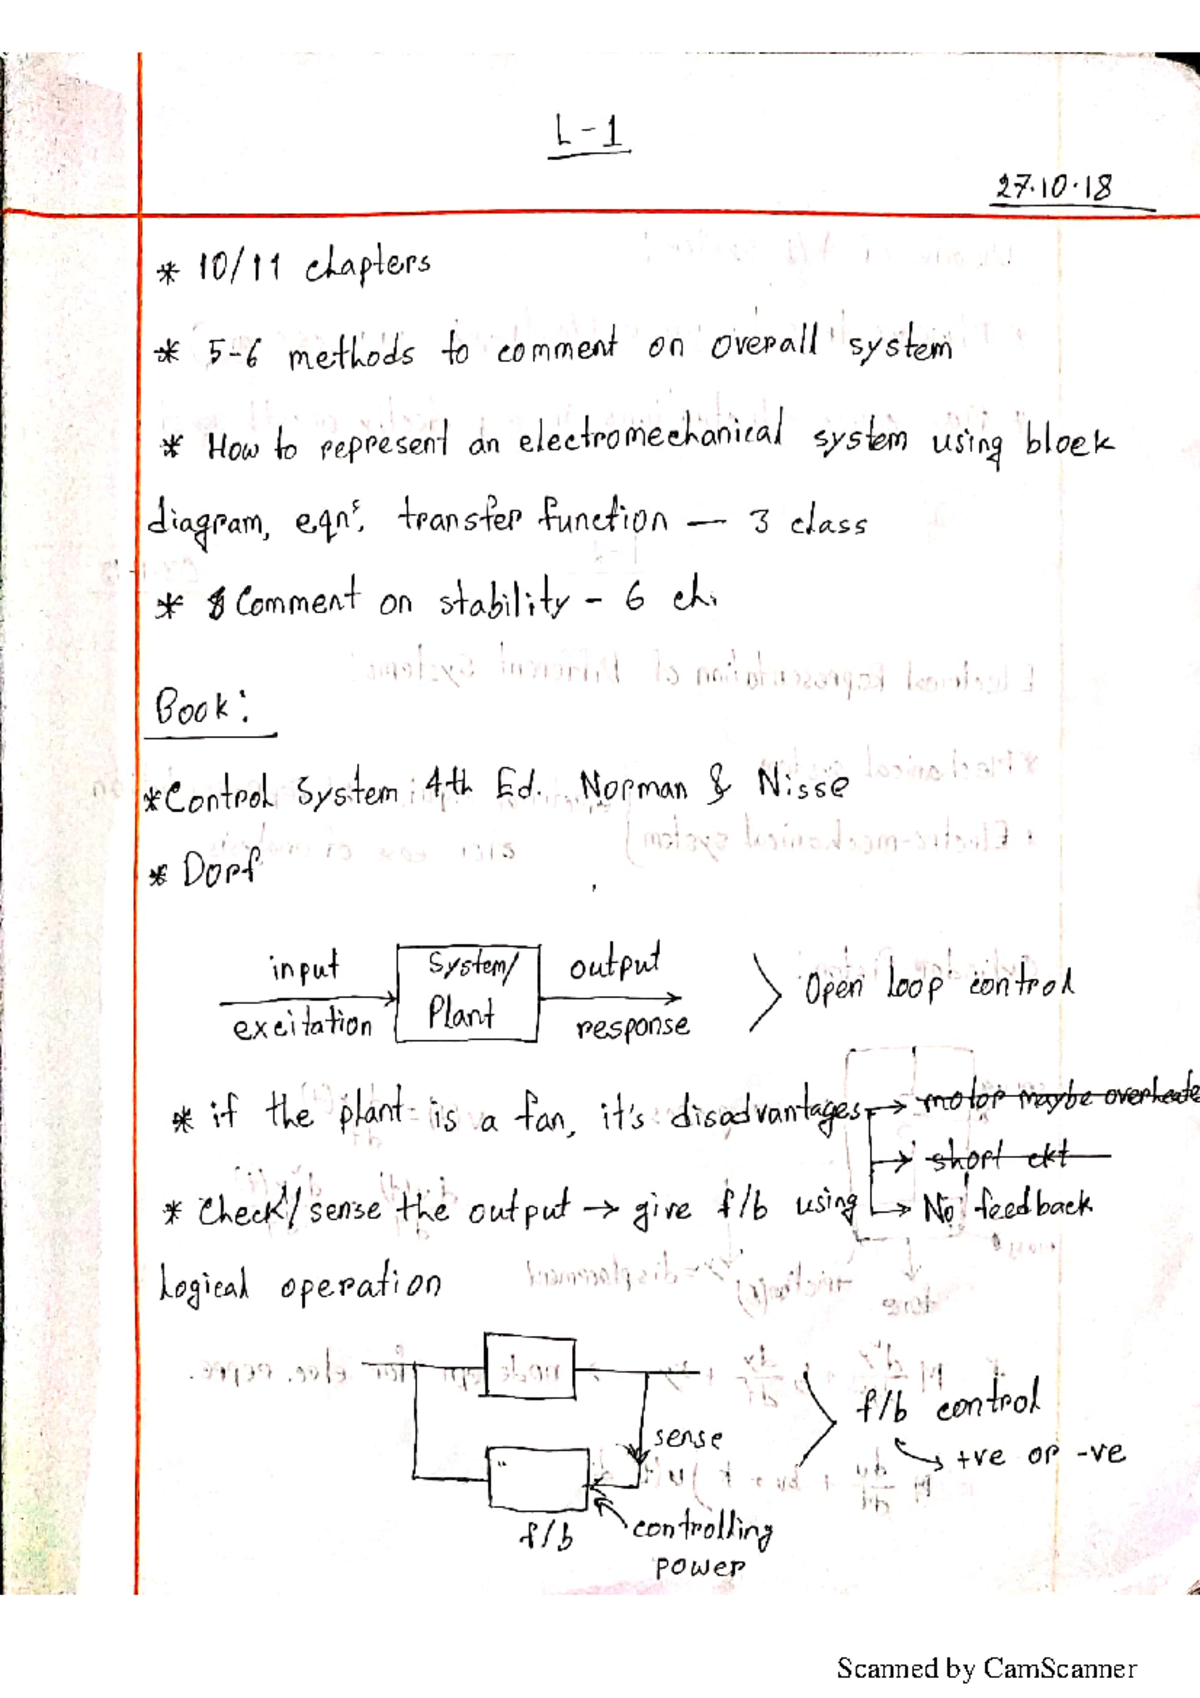 L-1
27.10.18
* 10/11 chapters
* 5-6 methods to comment on overall system
* How to represent an electromechanical system using block
diagram, eqns, transfer function — 3 class
* Comment on stability - 6 ch.
Book:
* Control System 4th Ed. Norman & Nisse
* Dorf
input
excitation
System/
Plant
output
response
Open loop control
* if the plant is a fan, it's disadvantages → motor maybe overheate
→ short ckt
* Check/sense the output → give f/b using
→ No feedback
Logical operation
sense
f/b control
+ve or -ve
f/b
controlling
power
Scanned by CamScanner